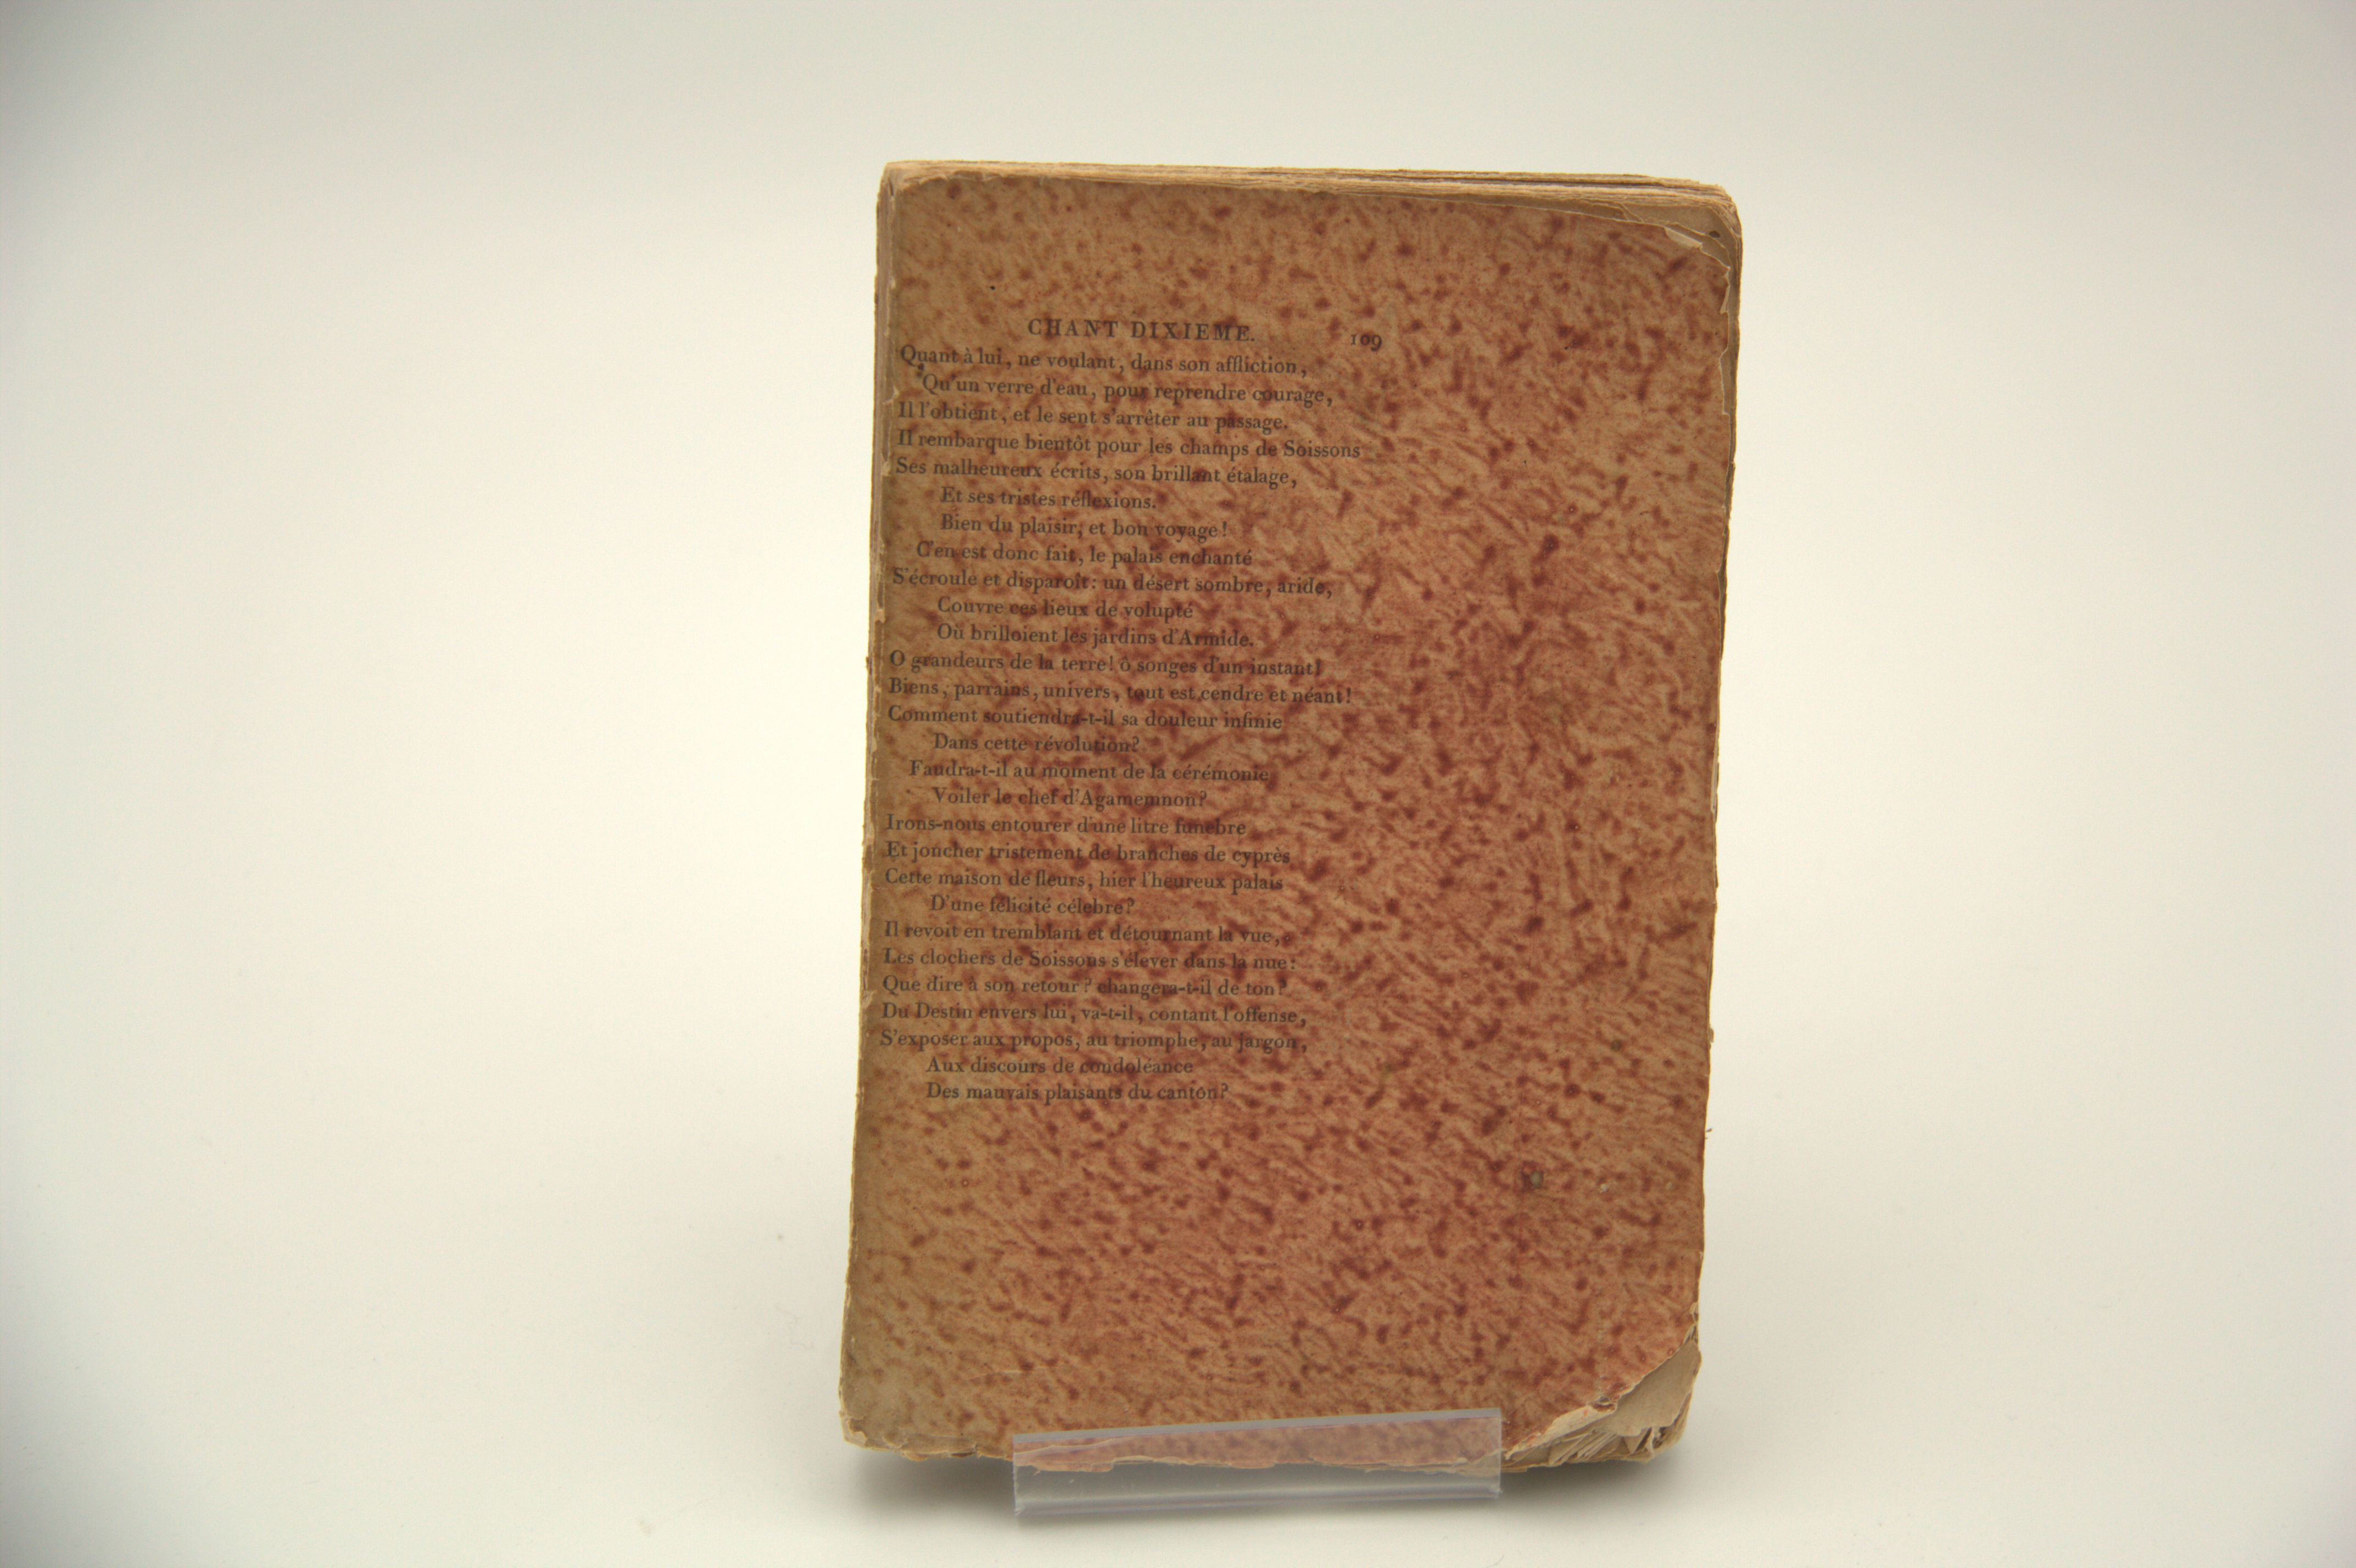 CHANT DIXIEME. 109
Quant à lui, ne voulant, dans son affliction,
Qu'un verre d'eau, pour reprendre courage,
Il l'obtient, et le sent s'arrêter au passage.
Il rembarque bientôt pour les champs de Soissons
Ses malheureux écrits, son brillant étalage,
Et ses tristes réflexions.
Bien du plaisir, et bon voyage!
C'en est donc fait, le palais enchanté
S'écroule et disparoît: un désert sombre, aride,
Couvre ces lieux de volupté
Où brilloient les jardins d'Armide.
O grandeurs de la terre! ô songes d'un instant!
Biens, parrains, univers, tout est cendre et néant!
Comment soutiendra-t-il sa douleur infinie
Dans cette révolution?
Faudra-t-il au moment de la cérémonie
Voiler le chef d'Agamemnon?
Irons-nous entourer d'une litre funebre
Et joncher tristement de branches de cyprès
Cette maison de fleurs, hier l'heureux palais
D'une félicité célebre?
Il revoit en tremblant et détournant la vue,
Les clochers de Soissons s'élever dans la nue:
Que dire à son retour? changera-t-il de ton?
Du Destin envers lui, va-t-il, contant l'offense,
S'exposer aux propos, au triomphe, au jargon,
Aux discours de condoléance
Des mauvais plaisants du canton?